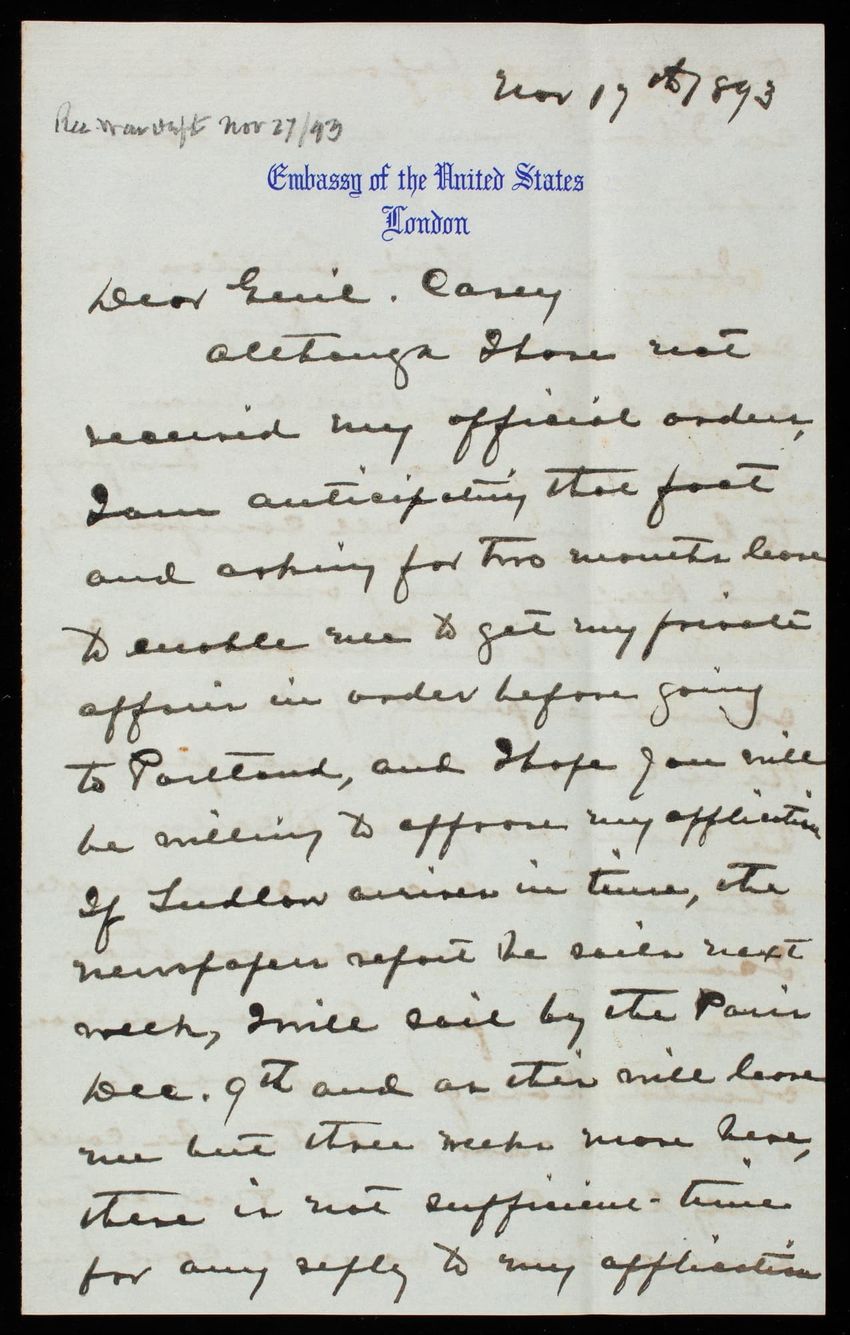 Nov 17th 1893
Rec War Dept Nov 27/93
Embassy of the United States
London
Dear Genl. Casey
Although I have not
received my official orders,
I am anticipating that fact
and asking for two months leave
to enable me to get my private
affairs in order before going
to Portland, and I hope you will
be willing to approve my application
If Ludlow arrives in time, the
newspapers report he sails next
week, I will sail by the Paris
Dec. 9th and as this will leave
me but three weeks more here,
there is not sufficient time
for any reply to my application